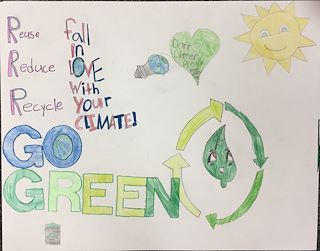 Reuse
Reduce
Recycle
fall
in
LOVE
With
YOur
CLIMATE!
Don't
Litter
GO
GREEN